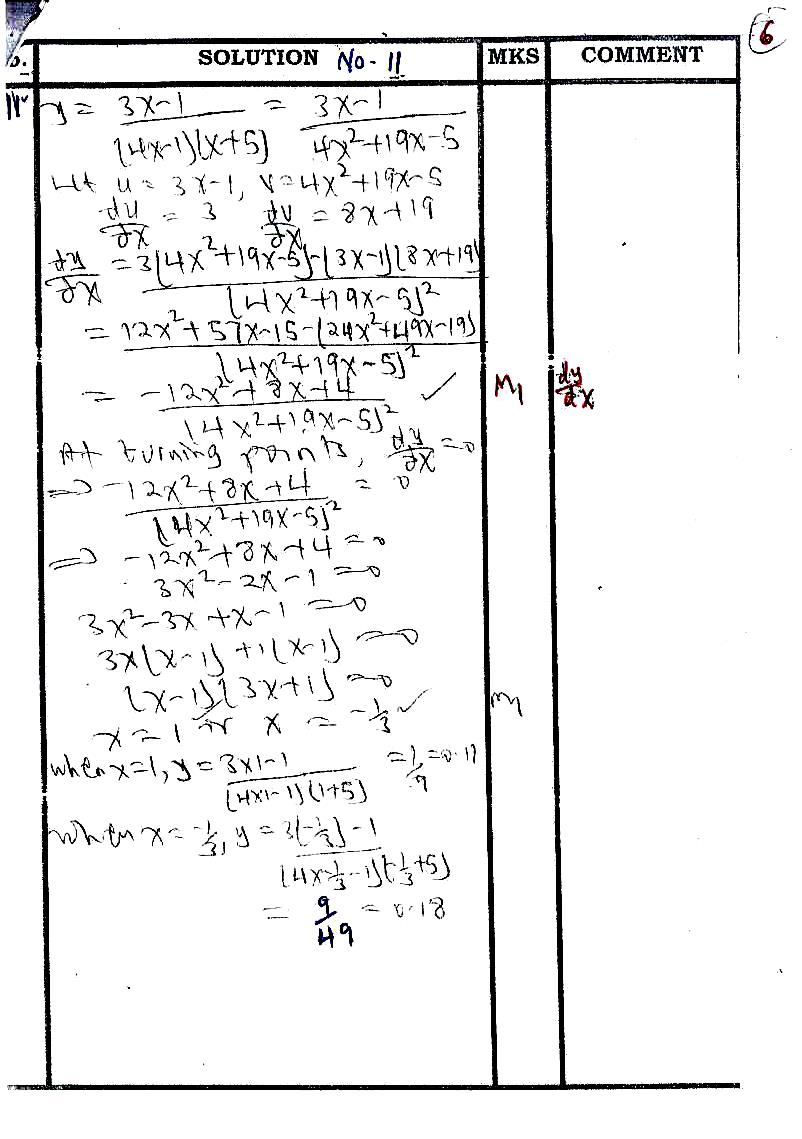 6
o. SOLUTION No - 11 MKS COMMENT
11. y = 3x-1 / (4x-1)(x+5) = 3x-1 / 4x²+19x-5
Let u = 3x-1, v = 4x²+19x-5
du/dx = 3 dv/dx = 8x+19
dy/dx = 3(4x²+19x-5)-(3x-1)(8x+19) / (4x²+19x-5)²
= 12x²+57x-15-(24x²+49x-19) / (4x²+19x-5)²
= -12x²+8x+4 / (4x²+19x-5)² ✓ M1 dy/dx
At turning points, dy/dx = 0
=> -12x²+8x+4 / (4x²+19x-5)² = 0
=> -12x²+8x+4 = 0
3x²-2x-1 = 0
3x²-3x+x-1 = 0
3x(x-1)+1(x-1) = 0
(x-1)(3x+1) = 0
x = 1 or x = -1/3 ✓ M1
when x=1, y = 3x1-1 / (4x1-1)(1+5) = 1/9 = 0.11
when x = -1/3, y = 3(-1/3)-1 / (4x-1/3-1)(-1/3+5)
= 9/49 = 0.18